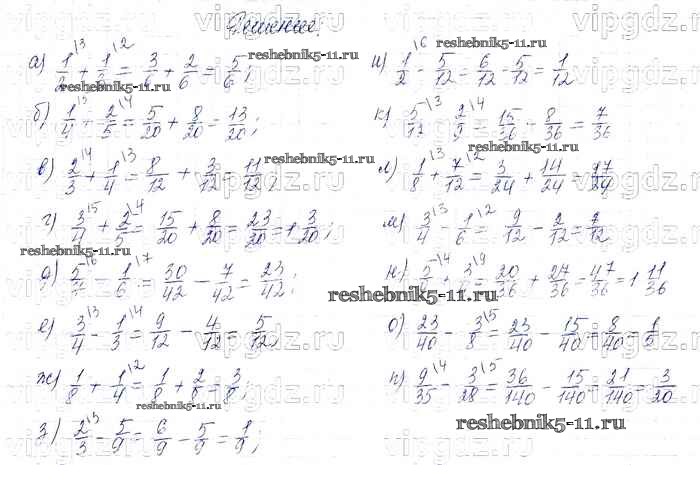 Решение.
а) 1/2 \3 + 1/3 \2 = 3/6 + 2/6 = 5/6;
б) 1/4 \5 + 2/5 \4 = 5/20 + 8/20 = 13/20;
в) 2/3 \4 + 1/4 \3 = 8/12 + 3/12 = 11/12;
г) 3/4 \5 + 2/5 \4 = 15/20 + 8/20 = 23/20 = 1 3/20;
д) 5/7 \6 - 1/6 \7 = 30/42 - 7/42 = 23/42;
е) 3/4 \3 - 1/3 \4 = 9/12 - 4/12 = 5/12;
ж) 1/8 + 1/4 \2 = 1/8 + 2/8 = 3/8;
з) 2/3 \3 - 5/9 = 6/9 - 5/9 = 1/9;
и) 1/2 \6 - 5/12 = 6/12 - 5/12 = 1/12
к) 5/12 \3 - 2/9 \4 = 15/36 - 8/36 = 7/36
л) 1/8 \3 + 7/12 \2 = 3/24 + 14/24 = 17/24
м) 3/4 \3 - 1/6 \2 = 9/12 - 2/12 = 7/12
н) 5/9 \4 + 3/4 \9 = 20/36 + 27/36 = 47/36 = 1 11/36
о) 23/40 - 3/8 \5 = 23/40 - 15/40 = 8/40 = 1/5
п) 9/35 \4 - 3/28 \5 = 36/140 - 15/140 = 21/140 = 3/20
reshebnik5-11.ru
vipgdz.ru